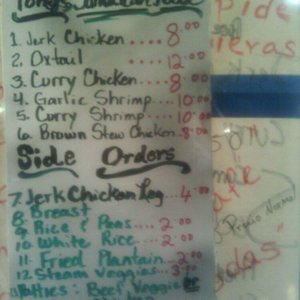 Tony's Jamaican Food
1. Jerk Chicken .... 8.00
2. Oxtail .... 12.00
3. Curry Chicken .... 8.00
4. Garlic Shrimp ... 10.00
5. Curry Shrimp .... 10.00
6. Brown Stew Chicken. 8.00
Side Orders
7. Jerk Chicken Leg ... 4.00
8. Breast
9. Rice & Peas .... 2.00
10. White Rice ... 2.00
11. Fried Plantain .. 2.00
12. Steam Veggies .. 3.00
Patties: Beef Veggie
Pide
Precio Normal